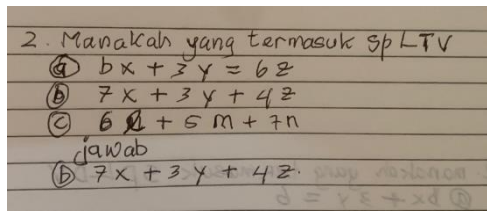 2. Manakah yang termasuk SpLTV
ⓐ bx + 3y = 6z
ⓑ 7x + 3y + 4z
ⓒ 6l + 5m + 7n
jawab
ⓑ 7x + 3y + 4z.